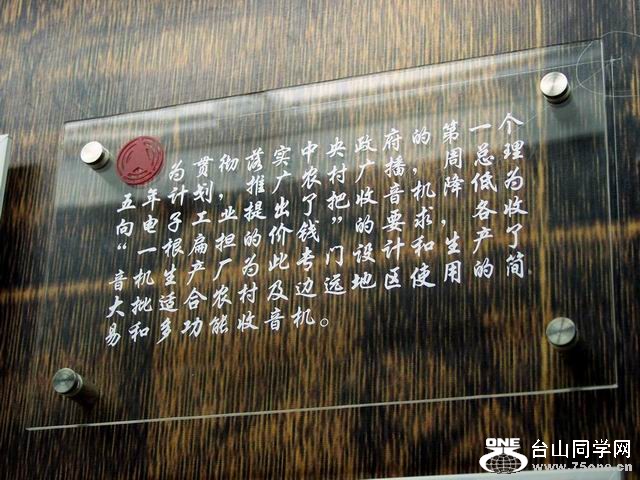 为贯彻落实中央政府的第一个
五年计划，推广农村广播，周总理
向电子工业提出了把收音机降低为
“一根扁担的价钱”的要求，各收
音机生产厂为此专门设计和生产了
大批适合农村及边远地区使用的简
易和多功能收音机。
ONE
台山同学网
www.75one.cn